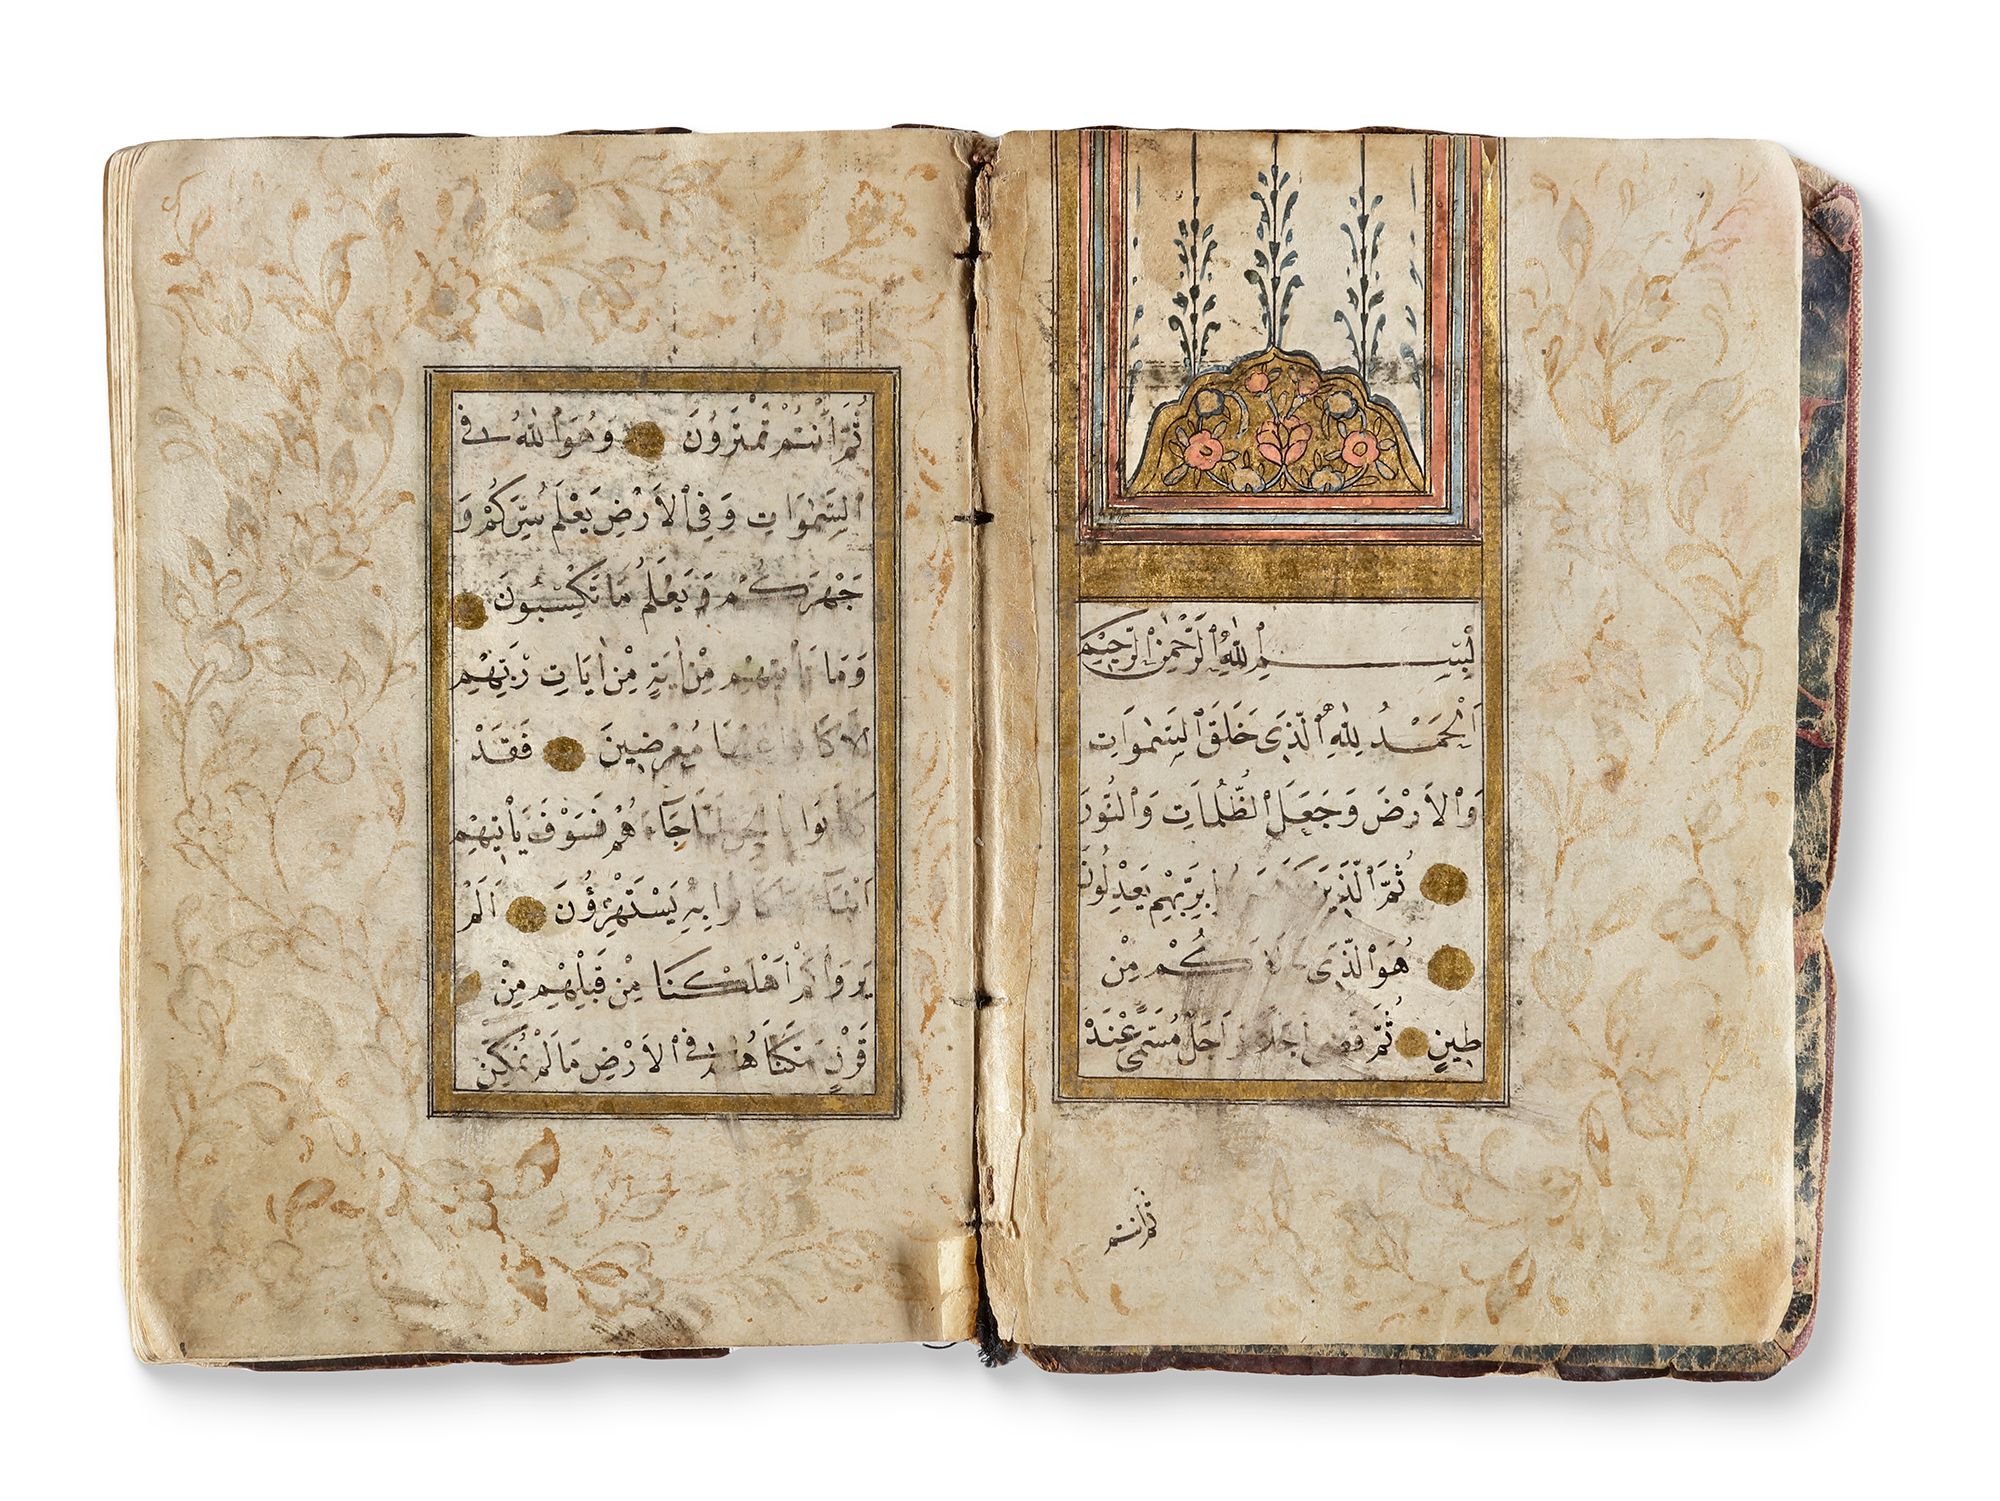 بِسْمِ اللّٰهِ الرَّحْمٰنِ الرَّحِيْمِ
اَلْحَمْدُ لِلّٰهِ الَّذِى خَلَقَ السَّمٰوَاتِ
وَالْاَرْضَ وَجَعَلَ الظُّلُمَاتِ وَالنُّورَ
ثُمَّ الَّذِينَ بِرَبِّهِمْ يَعْدِلُونَ
هُوَ الَّذِى كُمْ مِنْ
طِينٍ ثُمَّ قَضٰى اَجَلًا وَاَجَلٌ مُسَمًّى عِنْدَ
ثم انتم
ثُمَّ اَنْتُمْ تَمْتَرُونَ وَهُوَ اللّٰهُ فِى
السَّمٰوَاتِ وَفِى الْاَرْضِ يَعْلَمُ سِرَّكُمْ وَ
جَهْرَكُمْ وَيَعْلَمُ مَا تَكْسِبُونَ
وَمَا تَاْتِيهِمْ مِنْ اٰيَةٍ مِنْ اٰيَاتِ رَبِّهِمْ
اِلَّا كَانُوا عَنْهَا مُعْرِضِينَ فَقَدْ
كَذَّبُوا بِالْحَقِّ لَمَّا جَاءَهُمْ فَسَوْفَ يَاْتِيهِمْ
اَنْبَاءُ مَا كَانُوا بِهِ يَسْتَهْزِؤُنَ اَلَمْ
يَرَوْا كَمْ اَهْلَكْنَا مِنْ قَبْلِهِمْ مِنْ
قَرْنٍ مَكَّنَّاهُمْ فِى الْاَرْضِ مَا لَمْ نُمَكِّنْ